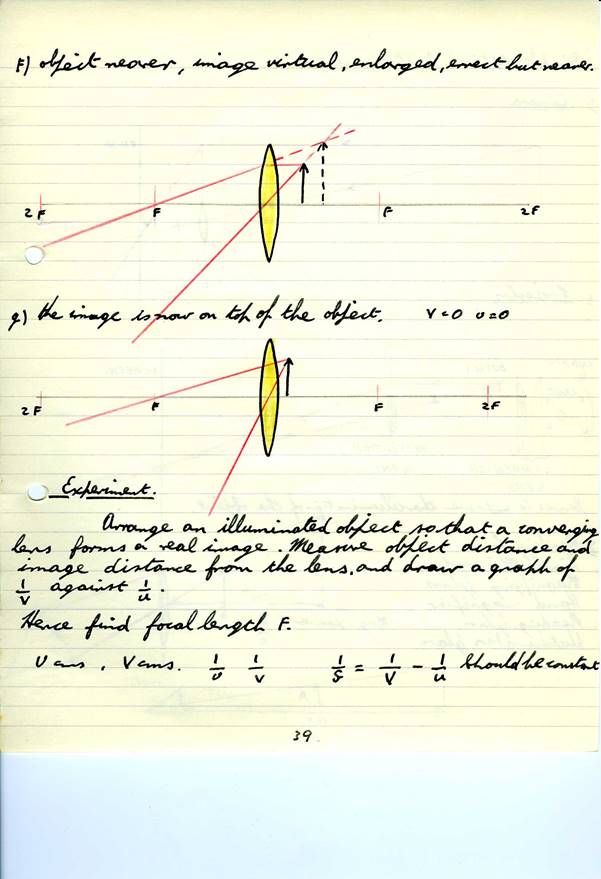 F) object nearer, image virtual, enlarged, errect but nearer.
2F F F 2F
g) the image is now on top of the object. V=0 u=0
2F F F 2F
Experiment.
Arrange an illuminated object so that a converging
lens forms a real image. Measure object distance and
image distance from the lens, and draw a graph of
1/V against 1/u.
Hence find focal length F.
U cms, V cms. 1/u 1/v 1/f = 1/V - 1/u should be constant
39.